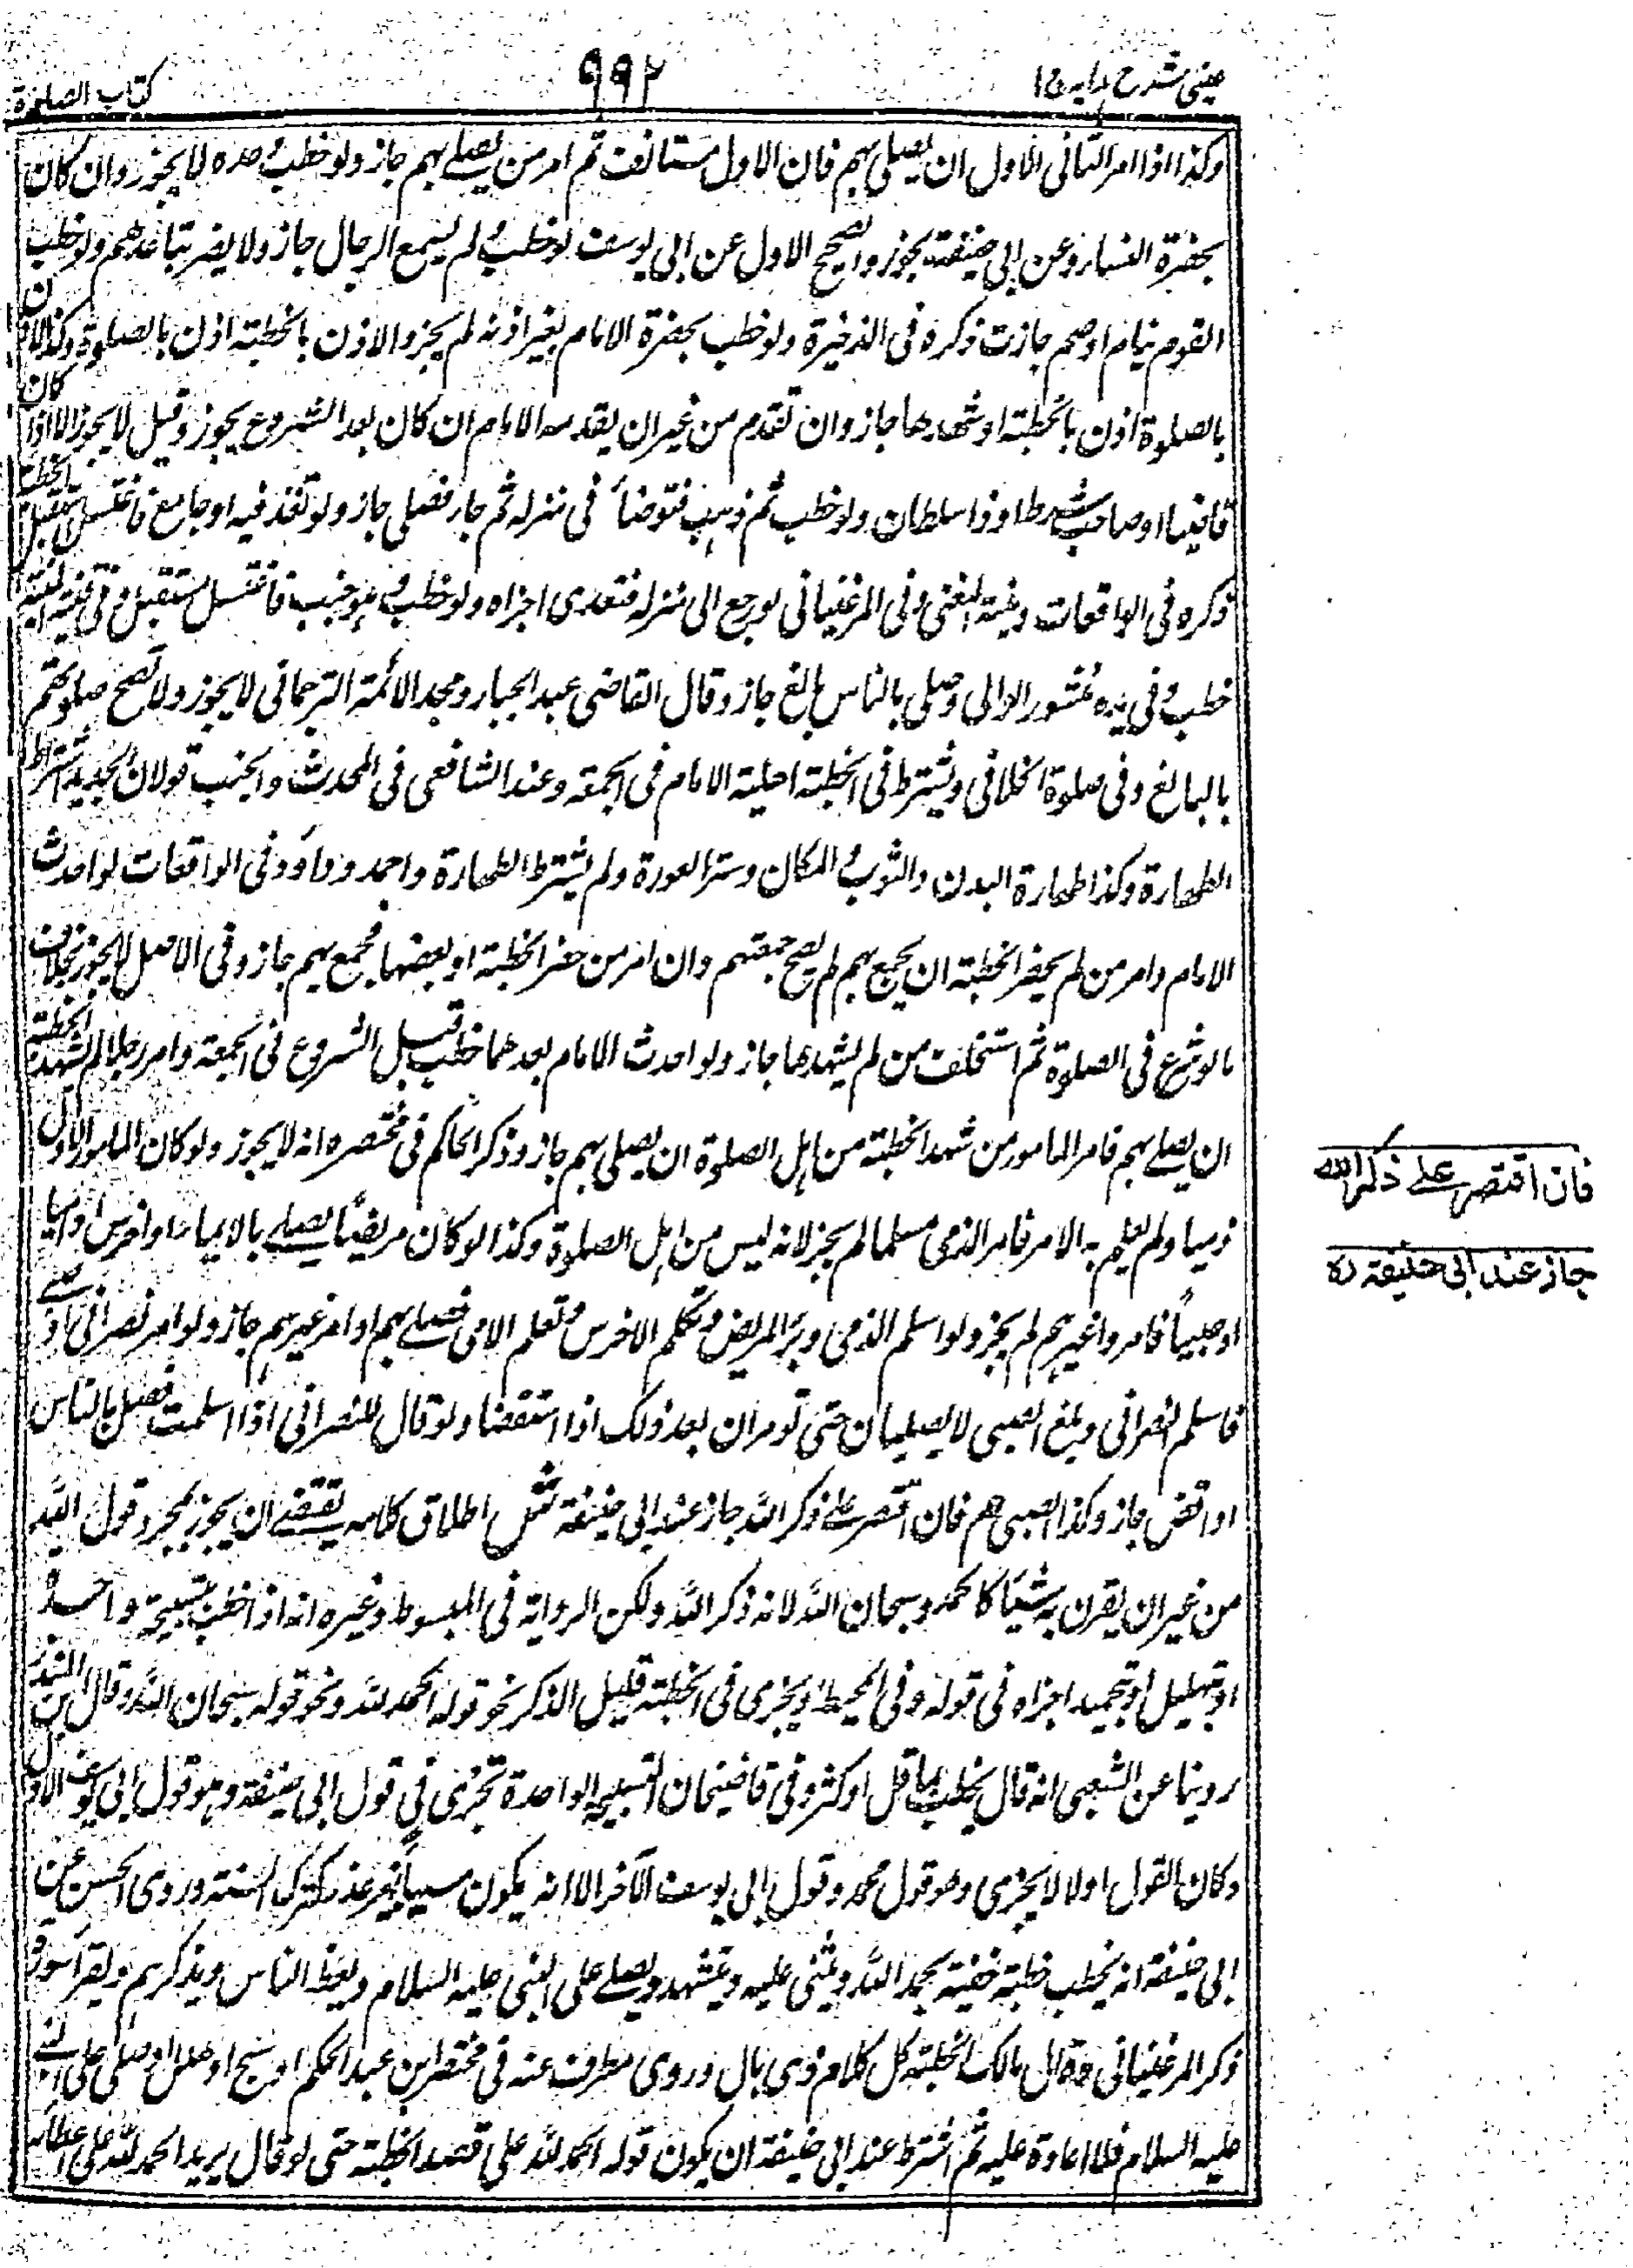 عینی شرح ہدایہ ج ۱
۹۹۲
کتاب الصلوٰة
وکذا اذا امر الثانی الاول ان یصلی بهم فان الاول مستانف ثم امر من یصلے بهم جاز ولو خطب وحده لا یجوز وان کان
بحضرة النساء وعن ابی حنیفة یجوز والصحیح الاول عن ابی یوسف لو خطب ولم یسمع الرجال جاز ولا یضر تباعدهم ولو خطب
القوم نیام او صم جازت ذکره فی الذخیرة ولو خطب بحضرة الامام بغیر اذنه لم یجز والاذن بالخطبة اذن بالصلوة وکذا الاذن
بالصلوة اذن بالخطبة او شهدها جاز وان تقدم من غیر ان یقدمه الامام ان کان بعد الشروع یجوز وقیل لا یجوز الا اذا کان
قاضیا او صاحب شرط او ذا سلطان ولو خطب ثم ذهب فتوضأ فی منزله ثم جاء فصلی جاز ولو تغذ فیه او جامع فاغتسل استقبل الخطبة
ذکره فی الواقعات ومنیة المغنی وفی المرغینانی لو رجع الی منزله فتغدی اجزاه ولو خطب وهو جنب فاغتسل استقبل وفی قنیة المنیة
خطب وفی یده منشور الوالی وصلی بالناس بالغ جاز وقال القاضی عبد الجبار ومجد الائمة الترجمانی لا یجوز ولا تصح صلوتهم
بالبالغ وفی صلوة الخلافی ویشترط فی الخطبة اهلیة الامام فی الجمعة وعند الشافعی فی المحدث والجنب قولان الجدید اشتراط
الطهارة وکذا طهارة البدن والثوب والمکان وستر العورة ولم یشترط الطهارة واحمد وداؤد وفی الواقعات لو احدث
الامام وامر من لم یحضر الخطبة ان یجمع بهم لم یصح جمعتهم وان امر من حضر الخطبة او بعضها فجمع بهم جاز وفی الاصل لا یجوز بخلاف
ما لو شرع فی الصلوة ثم استخلف من لم یشهدها جاز ولو احدث الامام بعد هما خطب قبل الشروع فی الجمعة وامر رجلا لم یشهد الخطبة
ان یصلے بهم فامر المامور من شهد الخطبة من اهل الصلوة ان یصلی بهم جاز وذکر الحاکم فی مختصره انه لا یجوز ولو کان المامور الاول
ذمیا ولم یعلم به الامر فامر الذمی مسلما لم یجز لانه لیس من اهل الصلوة وکذا لو کان مریضًا یصلے بالایماء او اخرس او امیا
او صبیاً فامروا غیرهم لم یجز ولو اسلم الذمی وبرّ المریض وتکلم الاخرس وتعلم الامی فصلے بهم او امر غیرهم جاز ولو امر نصرانی او صبی
فاسلم النصرانی وبلغ الصبی لا یصلیان حتی تومران بعد ذلک اذا استقضا ولو قال للنصرانی اذا اسلمت فصل بالناس
او اقض جاز وکذا الصبی هم فان اقتصر علے ذکر اللہ جاز عند ابی حنیفة ش اطلاق کلامه یقتضے ان یجوز بمجرد قول اللہ
من غیر ان یقرن به شیئا کالحمد وسبحان اللہ لانه ذکر اللہ ولکن الروایة فی المبسوط وغیره انه اذا خطب بتسبیحة واحدة
او بتهلیل او بتحمید اجزاه فی قوله وفی المحیط ویجزی فی الخطبة قلیل الذکر نحو قوله الحمد للہ ونحو قوله سبحان اللہ وقال ابن المنذر
روینا عن الشعبی انه قال یخطب بما قل او کثر وفی قاضیخان التسبیحة الواحدة تجزی فی قول ابی حنیفة وهو قول ابی یوسف الاول
وکان القول اولا لا یجزی وهو قول محمد وقول ابی یوسف الآخر الا انه یکون مسیئاً بغیر عذر کترک السنة وروی الحسن عن
ابی حنیفة انه یخطب خطبة خفیفة یحمد اللہ ویثنی علیه ویتشهد ویصلے علی النبی علیه السلام ویعظ الناس ویذکرهم ویقرأ سورة
ذکر المرغینانی وقال مالک الخطبة کل کلام ذی بال وروی مطرف عنه فی مختصر ابن عبد الحکم او سبح او هلل او صلی علی النبے
علیه السلام فلا اعادة علیه ثم اشترط عند ابی حنیفة ان یکون قوله الحمد للہ علی قصد الخطبة حتی لو قال یرید الحمد للہ علی عطاسه
فان اقتصر علے ذکر اللہ
جاز عند ابی حنیفة رہ